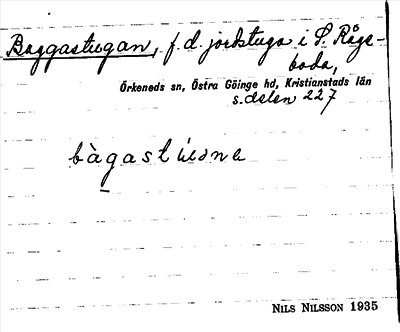 Baggastugan, f.d. jordstuga i S. Råge-
boda,
Örkeneds sn, Östra Göinge hd, Kristianstads län
s. delen 227
NILS NILSSON 1935